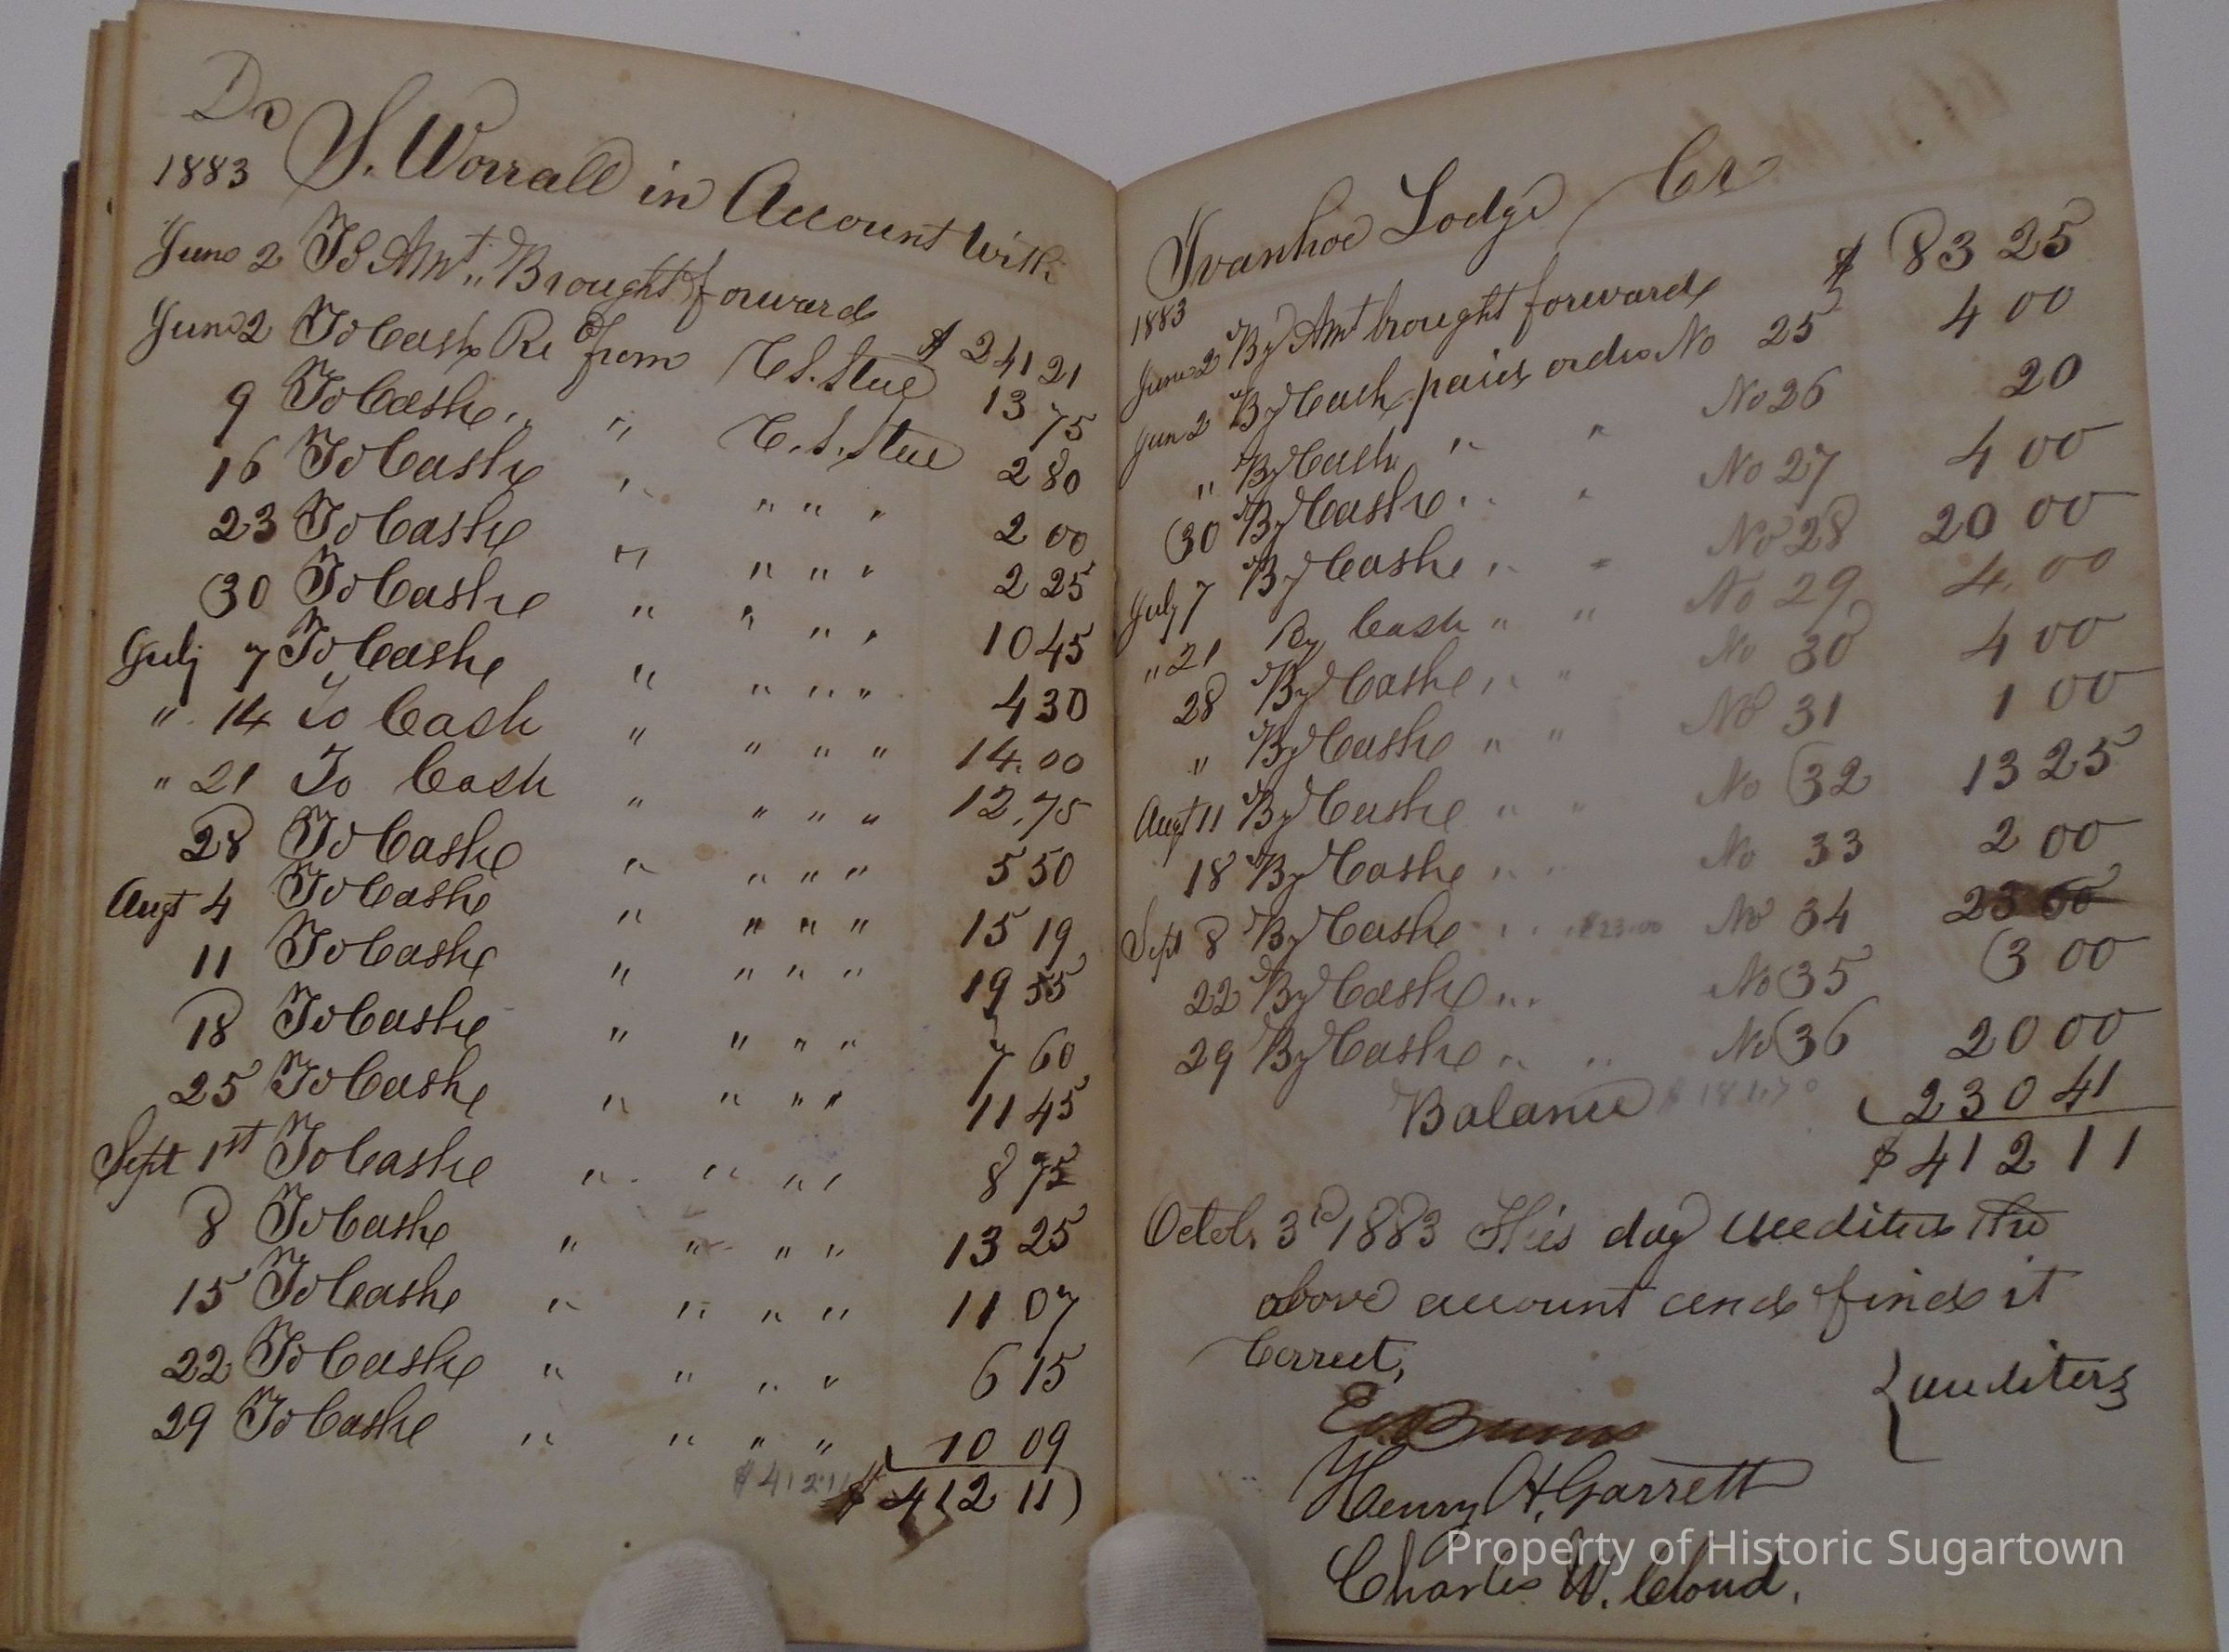 Dr
1883 S. Worrall in Account with
June 2 To Amt,, Brought forward $ 241 21
June 2 To Cash Re from C. S. Steel 13 75
9 To Cash " " C. S. Steel 2 80
16 To Cash " " " " 2 00
23 To Cash " " " " 2 25
30 To Cash " " " " 10 45
July 7 To Cash " " " " 4 30
" 14 To Cash " " " " 14.00
" 21 To Cash " " " " 12.75
28 To Cash " " " " 5 50
Augt 4 To Cash " " " " 15 19
11 To Cash " " " " 19 55
18 To Cash " " " " 7 60
25 To Cash " " " " 11 45
Sept 1st To Cash " " " " 8 75
8 To Cash " " " " 13 25
15 To Cash " " " " 11 07
22 To Cash " " " " 6 15
29 To Cash " " " " 10 09
$412.11 $ 412 11
Ivanhoe Lodge Cr
1883
June 2 By Amt brought forward $ 83 25
Jun 2 By Cash paid order No 25 4 00
" By Cash " " No 26 20
30 By Cash " " No 27 4 00
July 7 By Cash " " No 28 20 00
" 21 By Cash " " No 29 4.00
28 By Cash " " No 30 4 00
" By Cash " " No 31 1 00
Augt 11 By Cash " " No 32 13 25
18 By Cash " " No 33 2 00
Sept 8 By Cash " " $23.00 No 34 23 00
22 By Cash " " No 35 3 00
29 By Cash " " No 36 20 00
Balance $ 181.70 230 41
$ 412 11
Octob. 3d 1883 This day audited the
above account and find it
Correct,
auditers
Henry H. Garrett
Charles W. Cloud.
Property of Historic Sugartown